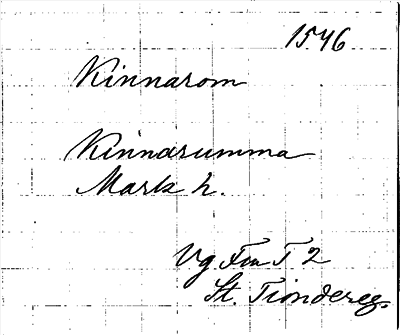 1546
Kinnarom
Kinnarumma
Marks h.
Vg Fm T 2
St. Tiondereg.